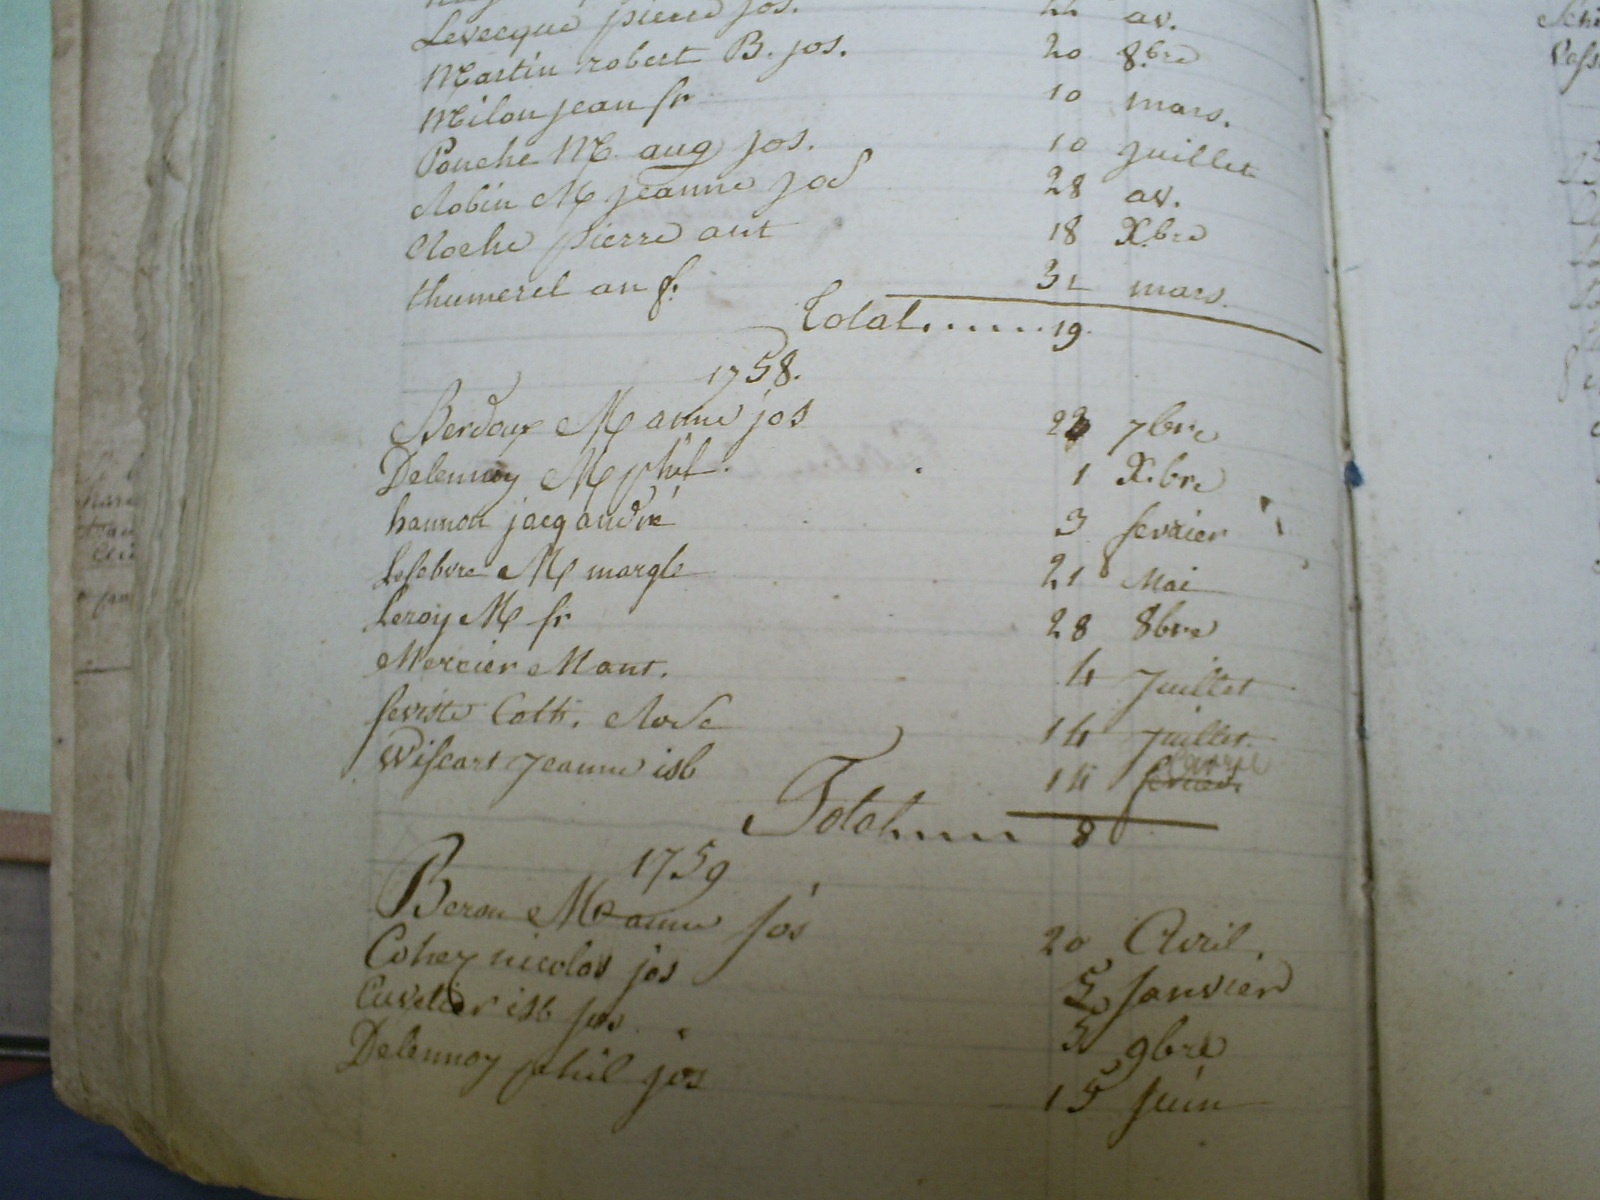 Levecque pierre jos. 22 av.
Martin robert B. jos. 20 8.bre
Milon jean fr 10 mars.
Pouche M. aug jos. 10 juillet
Robin M jeanne jos 28 av.
Roche pierre ant 18 X.bre
thumerel an f. 31 mars.
Total......19.
1758.
Berdoux M anne jos 7bre
Delennoy M phil. 1 X.bre
hannon jacq andré 3 fevrier
Lefebvre M margte 21 Mai
Leroy M fr 28 8bre
Mercier M ant. 4 Juillet
Catb. Rose 14 Juillet.
Wiscart Jeanne isb 14 fevrier
Total..... 8
1759
Beron M anne jos 20 Avril.
Cohez nicolas jos 5 Janvier
Cuvelier isb jos. 5 9bre
Delennoy phil jos 15 Juin